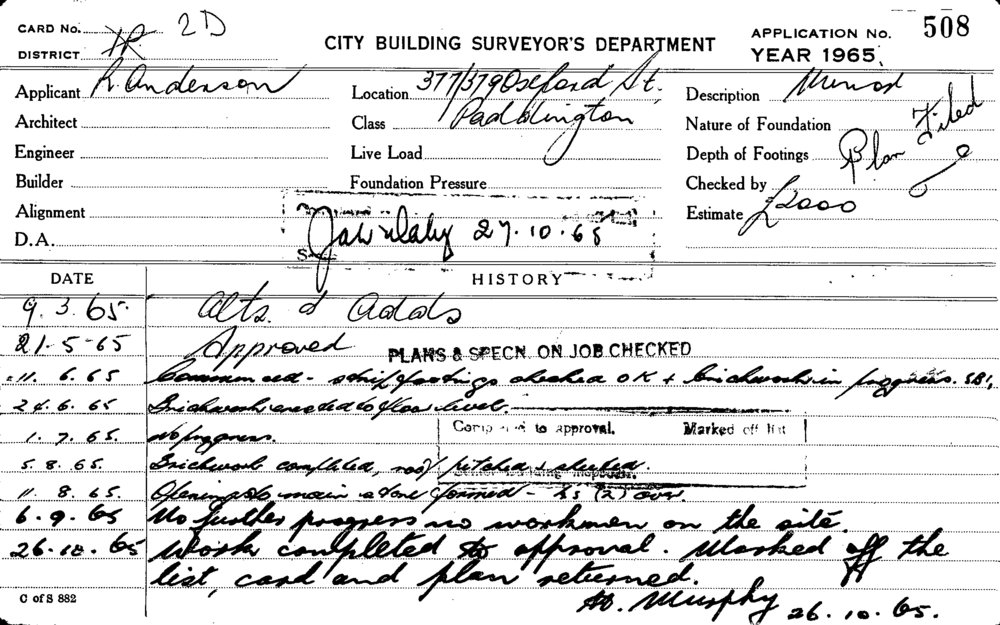 CARD No. 2D
APPLICATION No. 508
DISTRICT
CITY BUILDING SURVEYOR'S DEPARTMENT
YEAR 1965
Applicant R. Anderson
Location 377/379 Oxford St.
Paddington
Description Minor
Architect
Class
Nature of Foundation
Plan Filed
Engineer
Live Load
Depth of Footings
Builder
Foundation Pressure
Checked by
Alignment
Estimate £2000
D.A.
27.10.65
DATE HISTORY
9.3.65. Alts. & Adds
21-5-65 Approved PLANS & SPECN. ON JOB CHECKED
11.6.65 Commenced - strip footings checked OK + brickwork in progress.
24.6.65 Brickwork erected to floor level.
1.7.65. No progress. to approval. Marked off list
5.8.65. Brickwork completed, roof pitched + sheeted.
11.8.65. Openings to main store formed - (2) over.
6.9.65 No further progress no workmen on the site.
26.10.65 Work completed to approval. Marked off the
list, card and plan returned.
C of S 882
Murphy 26.10.65.